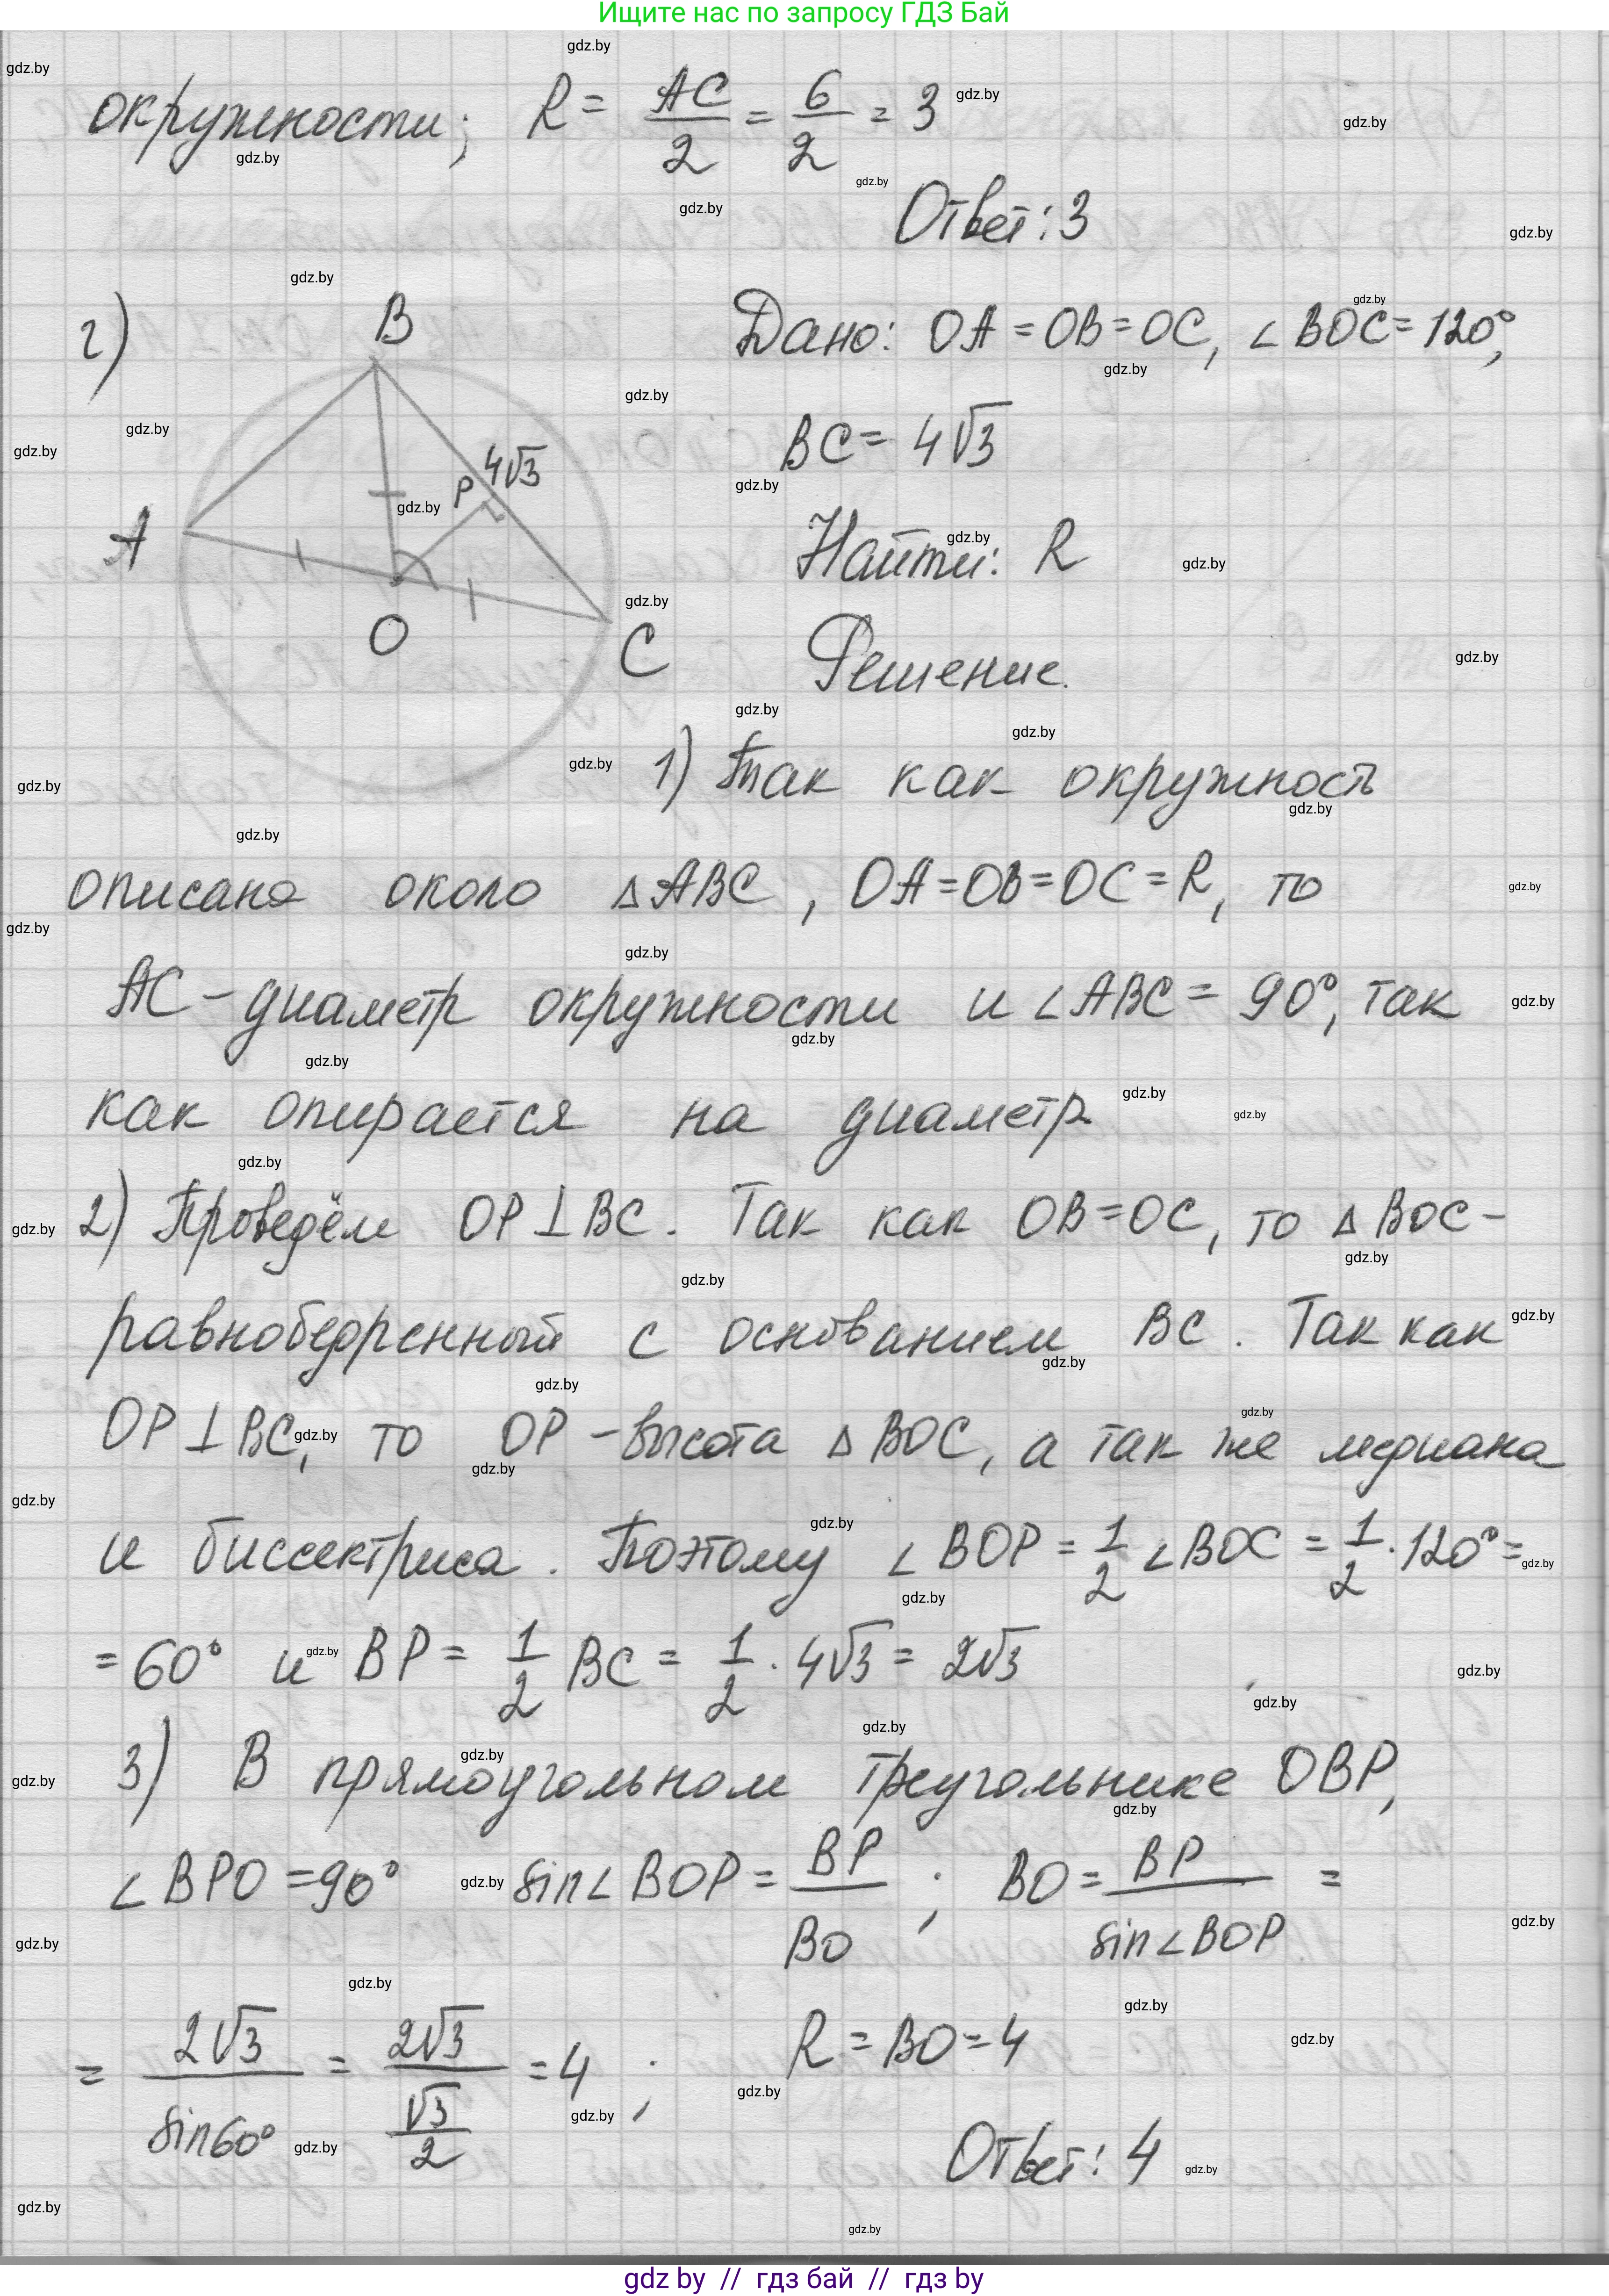 Ищите нас по запросу ГДЗ Бай
окружности; R = AC/2 = 6/2 = 3
Ответ: 3
г)
B
A
O
C
P
4√3
Дано: OA = OB = OC, ∠BOC = 120°,
BC = 4√3
Найти: R
Решение.
1) Так как окружность
описана около △ABC, OA=OB=OC=R, то
AC - диаметр окружности и ∠ABC = 90°, так
как опирается на диаметр
2) Проведём OP⊥BC. Так как OB=OC, то △BOC -
равнобедренный с основанием BC. Так как
OP⊥BC, то OP - высота △BOC, а так же медиана
и биссектриса. Поэтому ∠BOP = 1/2 ∠BOC = 1/2 · 120° =
= 60° и BP = 1/2 BC = 1/2 · 4√3 = 2√3
3) В прямоугольном треугольнике OBP,
∠BPO = 90° sin∠BOP = BP/BO ; BO = BP/sin∠BOP =
= 2√3/sin60° = 2√3/(√3/2) = 4 ; R = BO = 4
Ответ: 4
gdz by // гдз бай // гдз by